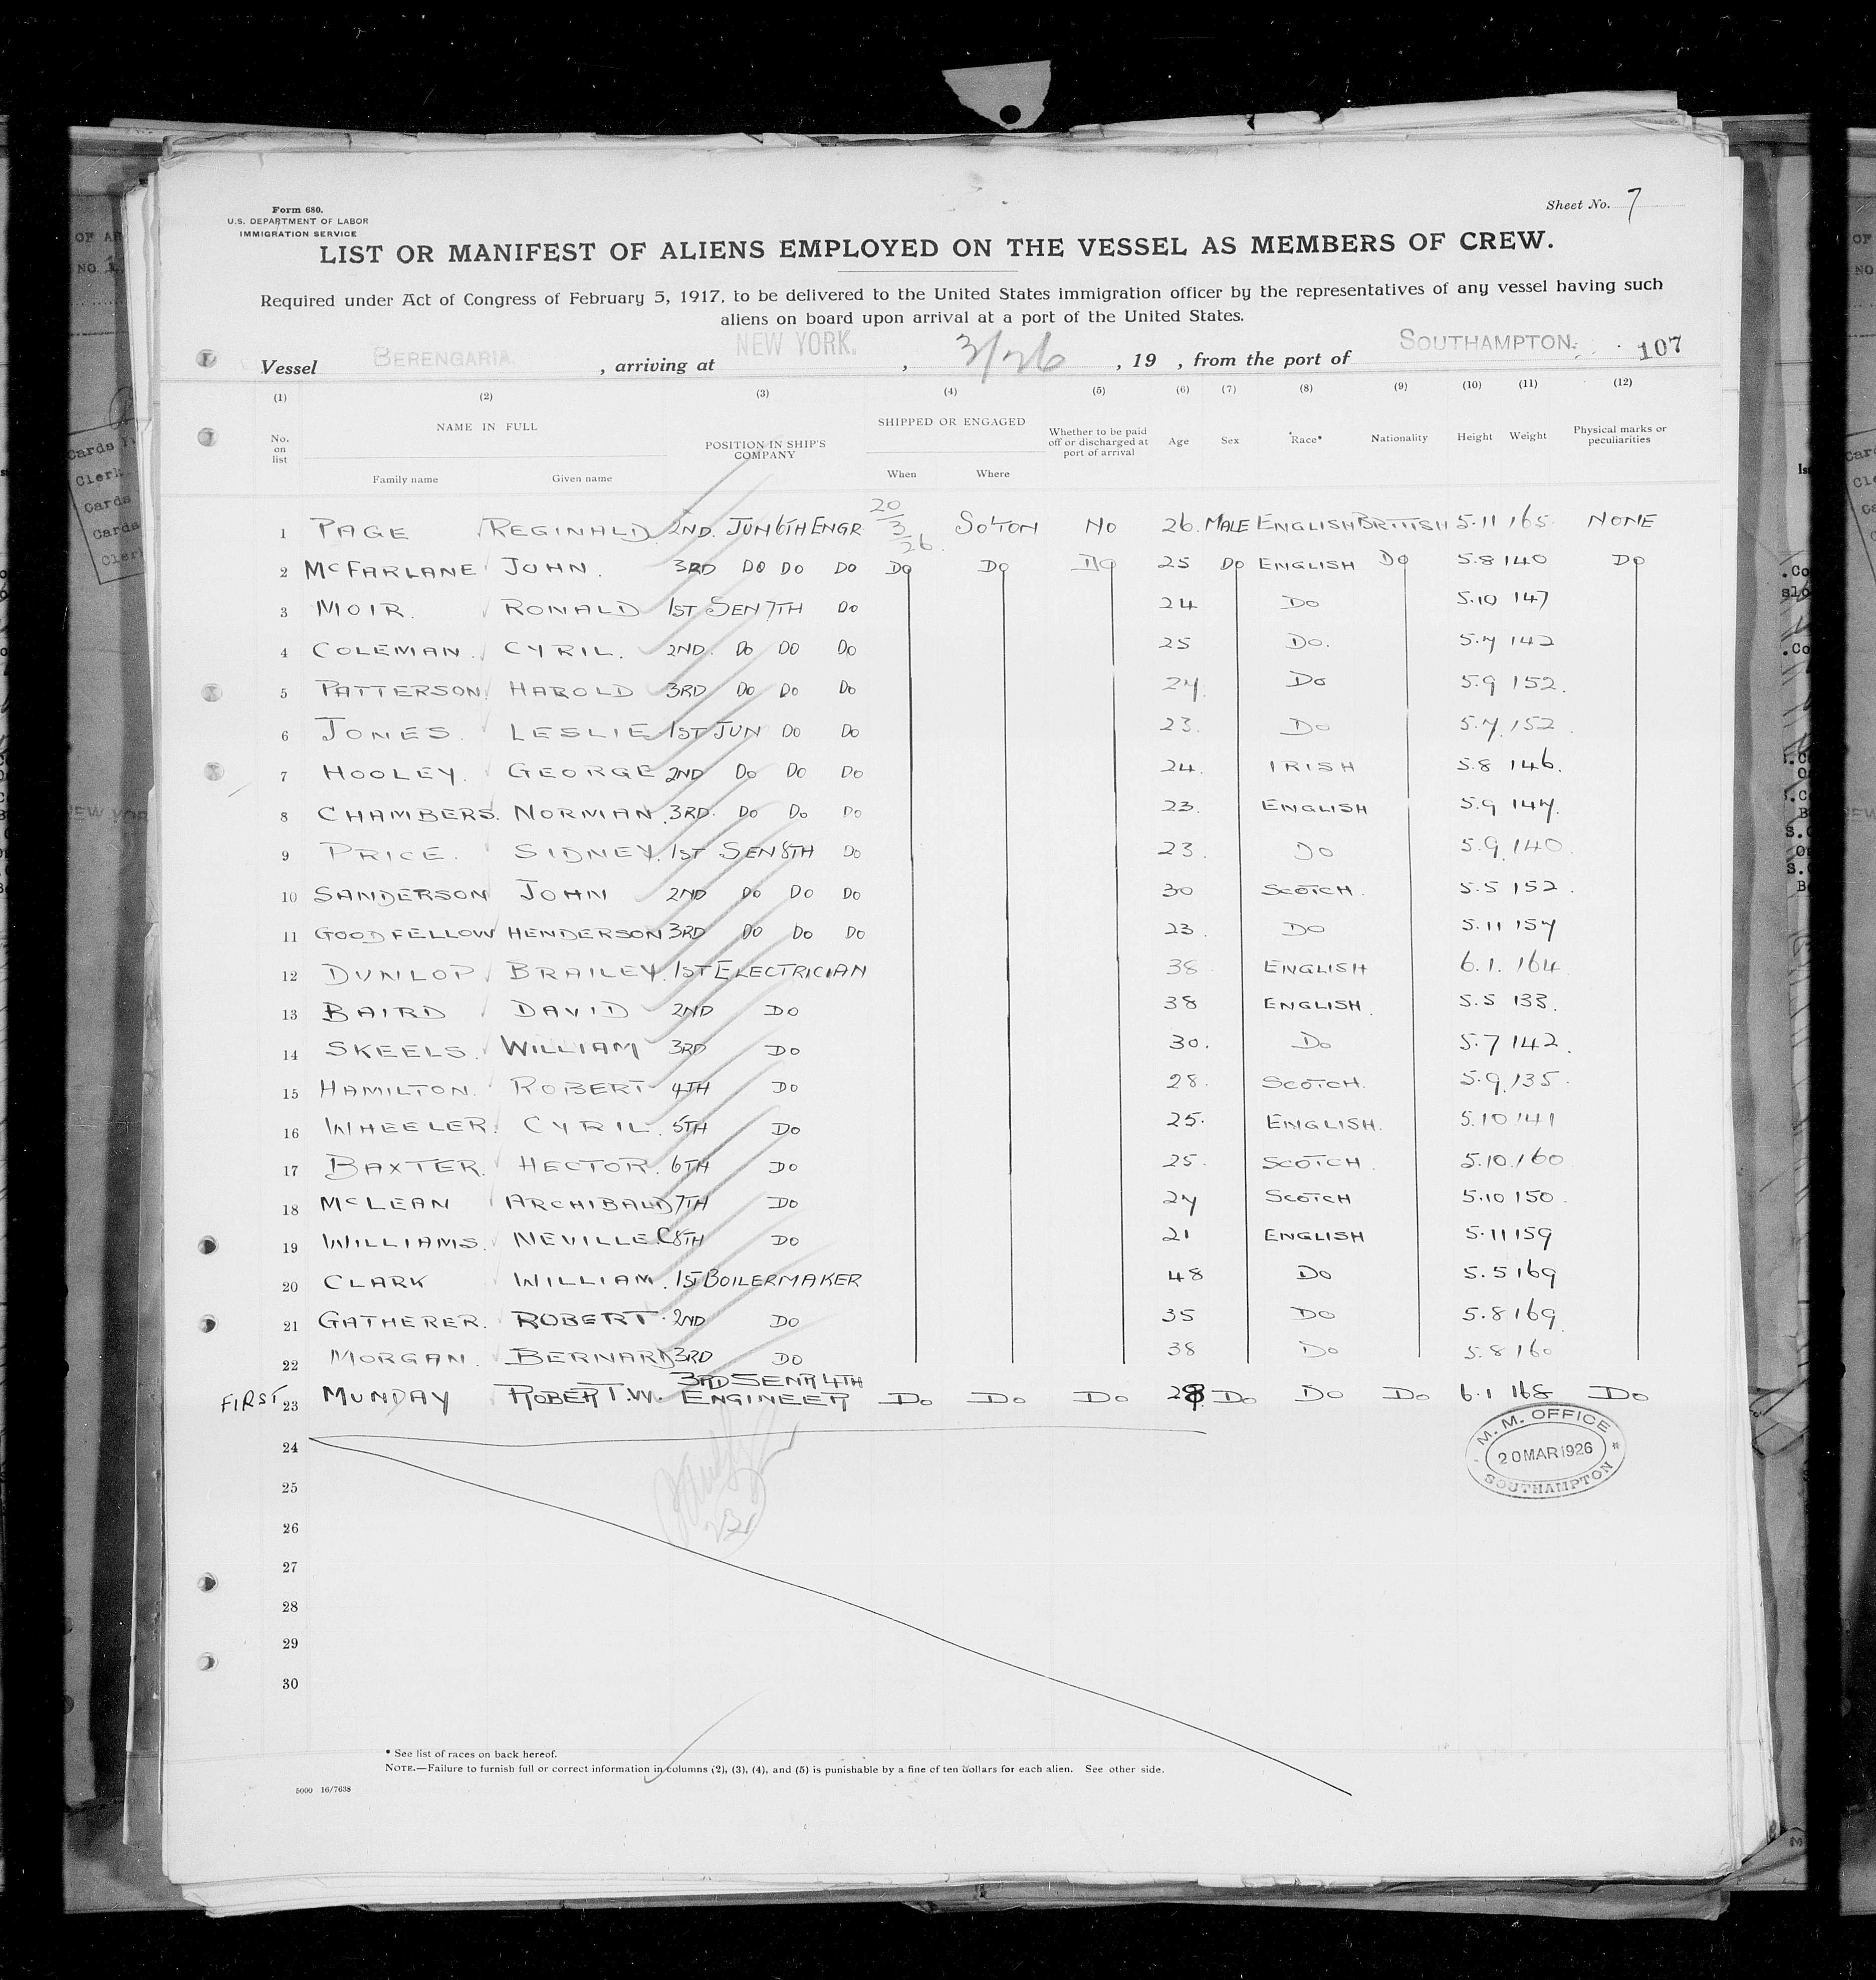 Form 680.
U.S. DEPARTMENT OF LABOR
IMMIGRATION SERVICE
Sheet No. 7
LIST OR MANIFEST OF ALIENS EMPLOYED ON THE VESSEL AS MEMBERS OF CREW.
Required under Act of Congress of February 5, 1917, to be delivered to the United States immigration officer by the representatives of any vessel having such
aliens on board upon arrival at a port of the United States.
Vessel BERENGARIA , arriving at NEW YORK. , 3/26 , 19 , from the port of SOUTHAMPTON. 107
(1) (2) (3) (4) (5) (6) (7) (8) (9) (10) (11) (12)
No. on list NAME IN FULL Family name Given name POSITION IN SHIP'S COMPANY SHIPPED OR ENGAGED When Where Whether to be paid off or discharged at port of arrival Age Sex *Race* Nationality Height Weight Physical marks or peculiarities
1 PAGE REGINALD 2ND. JUN 6TH ENGR 20/3/26. SO'TON NO 26. MALE ENGLISH BRITISH 5.11 165. NONE
2 McFARLANE JOHN. 3RD DO DO DO DO DO DO 25 DO ENGLISH DO 5.8 140 DO
3 MOIR. RONALD 1ST SEN 7TH DO 24 DO 5.10 147
4 COLEMAN. CYRIL. 2ND. DO DO DO 25 DO. 5.7 142
5 PATTERSON. HAROLD 3RD DO DO DO 24. DO 5.9 152.
6 JONES. LESLIE 1ST JUN DO DO 23. DO 5.7. 152.
7 HOOLEY. GEORGE 2ND DO DO DO 24. IRISH 5.8 146.
8 CHAMBERS. NORMAN. 3RD. DO DO DO 23. ENGLISH 5.9 147.
9 PRICE. SIDNEY. 1ST SEN 8TH DO 23. DO 5.9. 140.
10 SANDERSON JOHN 2ND DO DO DO 30 SCOTCH. 5.5 152.
11 GOODFELLOW HENDERSON 3RD DO DO DO 23. DO 5.11 157
12 DUNLOP BRAILEY. 1ST ELECTRICIAN 38 ENGLISH 6.1. 164.
13 BAIRD DAVID 2ND DO 38 ENGLISH. 5.5 133.
14 SKEELS. WILLIAM 3RD DO 30. DO 5.7 142.
15 HAMILTON. ROBERT 4TH DO 28. SCOTCH. 5.9. 135.
16 WHEELER. CYRIL. 5TH DO 25. ENGLISH. 5.10 141
17 BAXTER. HECTOR. 6TH DO 25. SCOTCH. 5.10. 160
18 McLEAN ARCHIBALD 7TH DO 24 SCOTCH 5.10 150.
19 WILLIAMS. NEVILLE.C 8TH DO 21 ENGLISH 5.11 159
20 CLARK WILLIAM. 1ST BOILERMAKER 48 DO 5.5 169
21 GATHERER. ROBERT. 2ND DO 35 DO 5.8 169
22 MORGAN. BERNARD 3RD DO 38 DO 5.8 160
FIRST 23 MUNDAY ROBERT.W. 3RD SENR 4TH ENGINEER DO DO DO 28 DO DO DO 6.1 168 DO
24
25
26
27
28
29
30
M. M. OFFICE
20 MAR 1926
SOUTHAMPTON
* See list of races on back hereof.
NOTE.—Failure to furnish full or correct information in columns (2), (3), (4), and (5) is punishable by a fine of ten dollars for each alien. See other side.
5000 16/7638